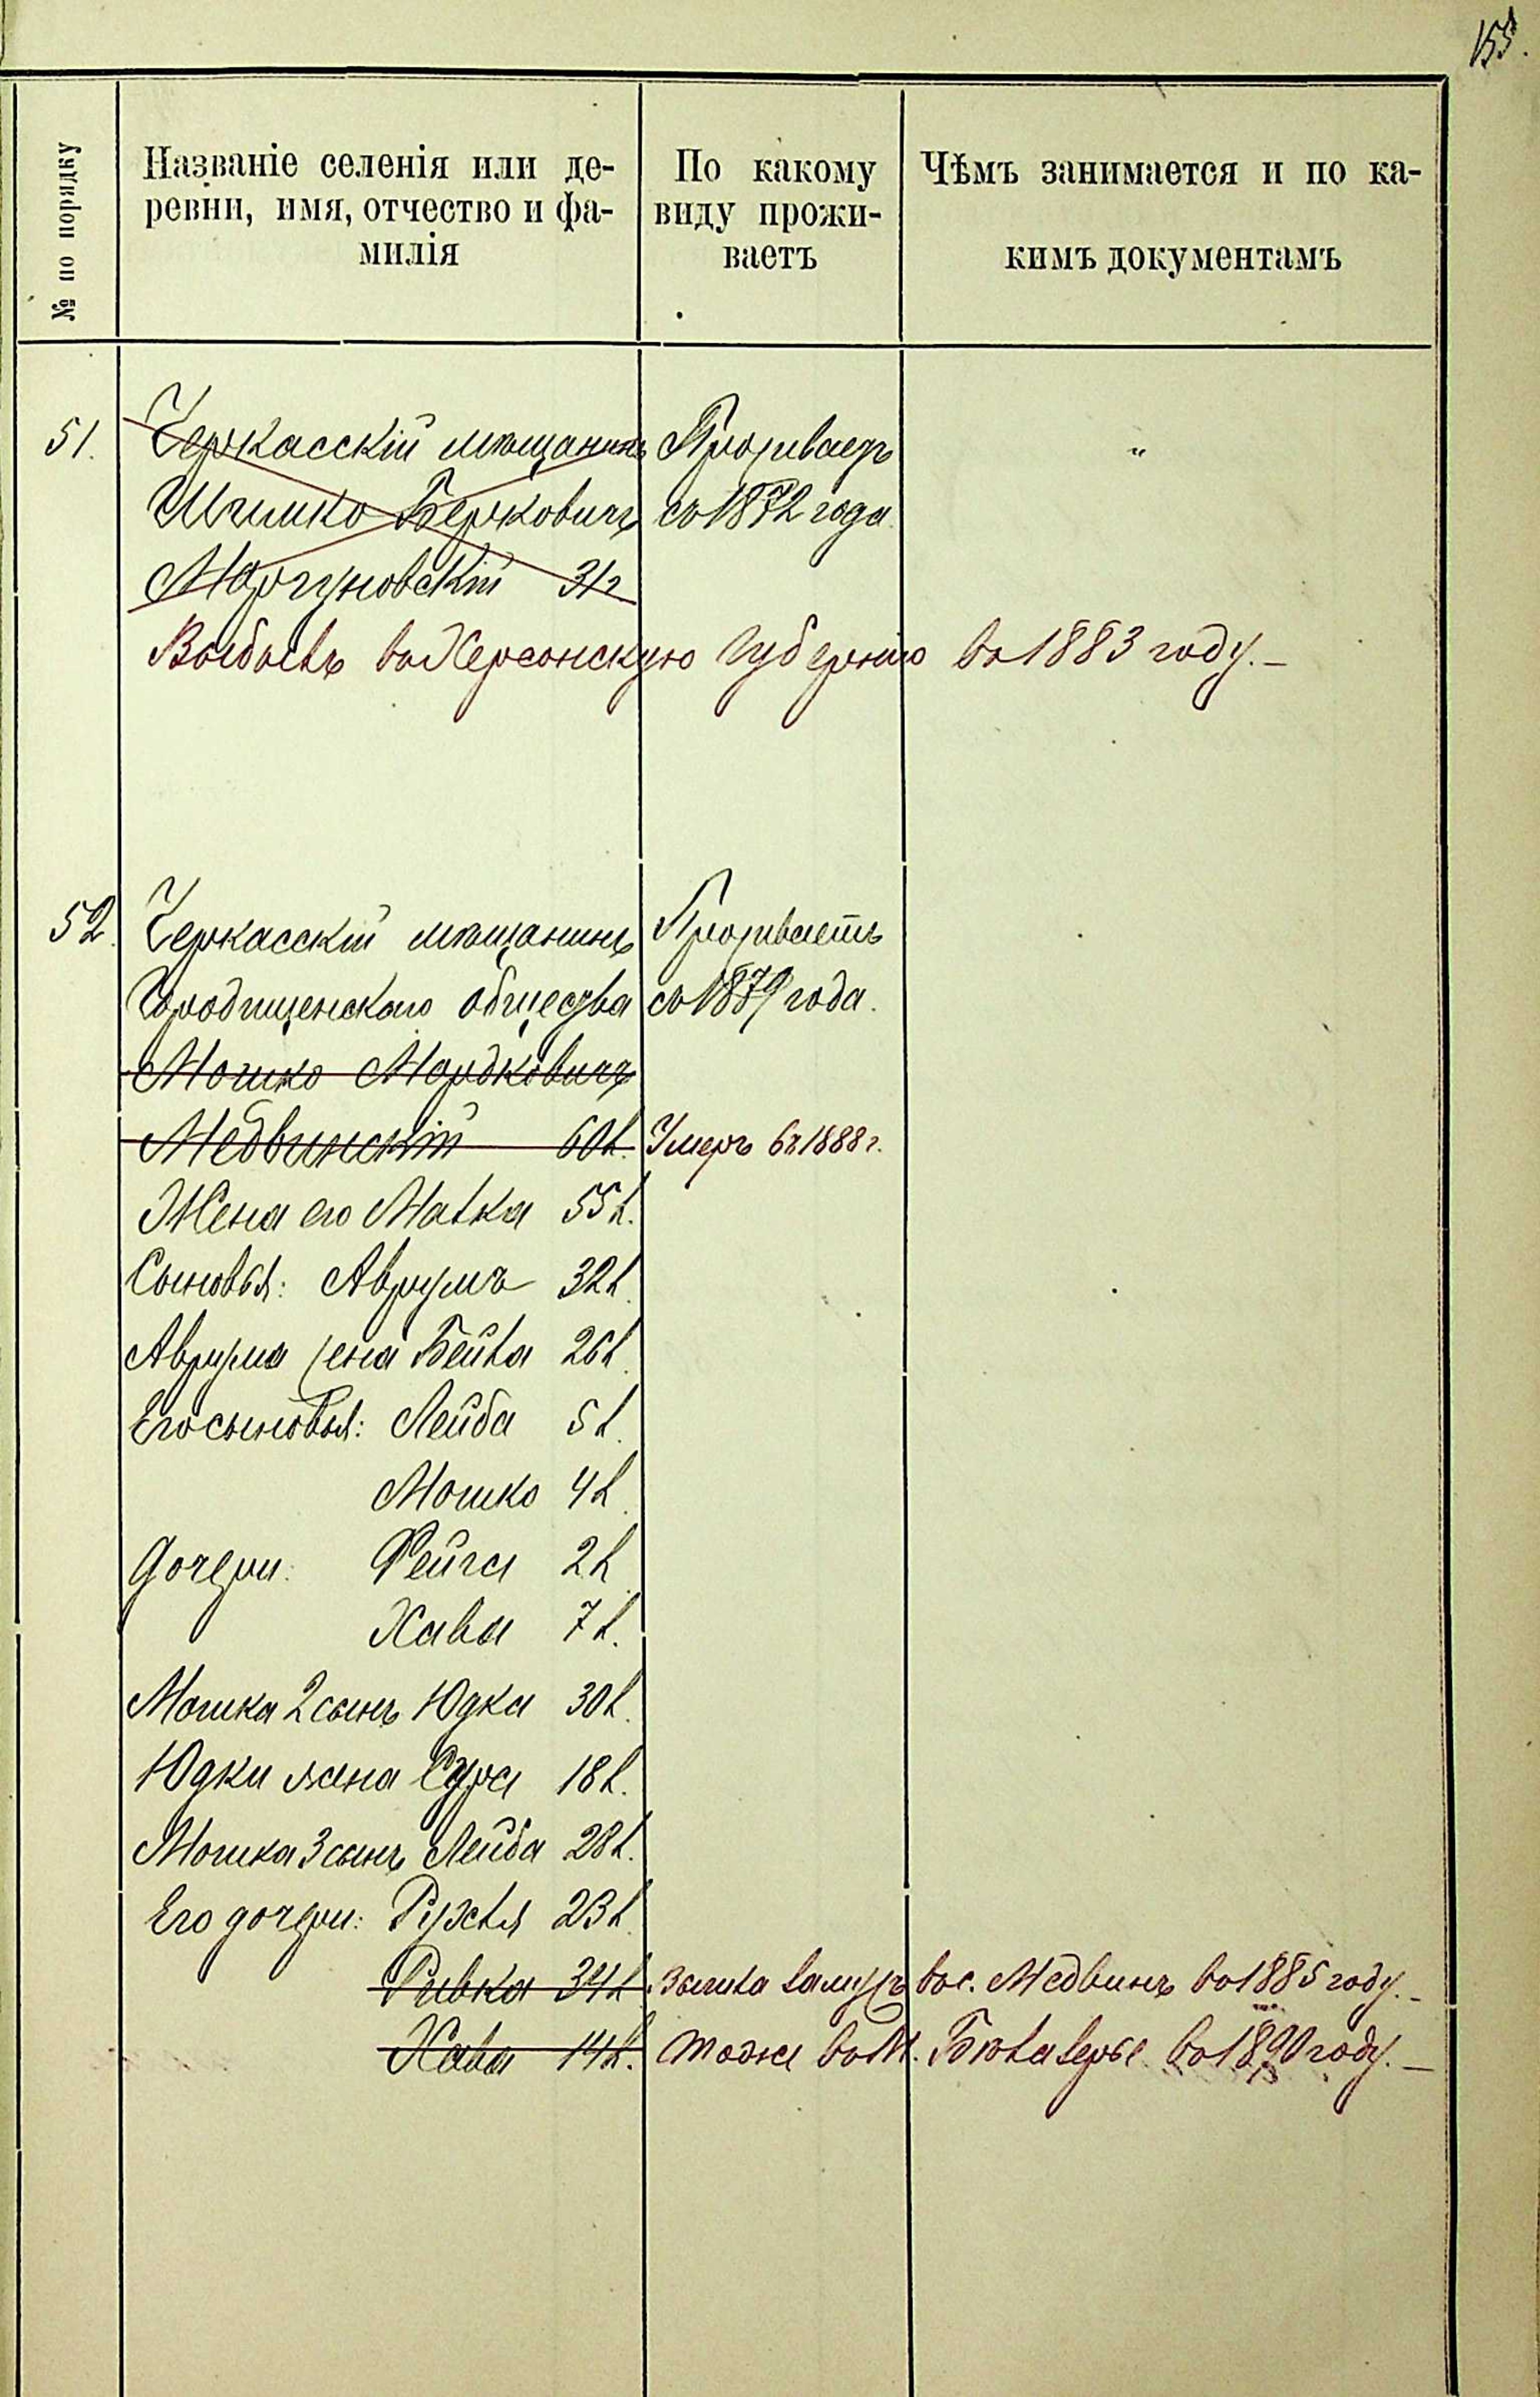 155.
№ по порядку
Названіе селенія или де-
ревни, имя, отчество и фа-
милія
По какому
виду прожи-
ваетъ
Чѣмъ занимается и по ка-
кимъ документамъ
51. Черкасскій мѣщанинъ Проживаетъ "
Шимко Берковичъ съ 1872 года.
Моргуновскій 31 г
Выбылъ въ Херсонскую Губернію въ 1883 году. —
52. Черкасскій мѣщанинъ Проживаетъ
Городищенскаго общества съ 1879 года.
Мошко Мордковичъ
Медвинскій 60 л. Умеръ въ 1888 г.
Жена его Малка 55 л.
Сыновья: Аврумъ 32 л.
Аврума жена Бейла 26 л.
Его сыновья: Лейба 5 л.
Мошко 4 л.
Дочери: Фейга 2 л.
Хава 7 л.
Мошка 2 сынъ Юдка 30 л.
Юдки жена Сура 18 л.
Мошка 3 сынъ Лейба 28 л.
Его дочери: Рухля 23 л.
Ривка 34 л. Вышла замужъ въ с. Медвинъ въ 1885 году. —
Хава 14 л. тоже въ М. Бѣлазерье въ 1890 году. —